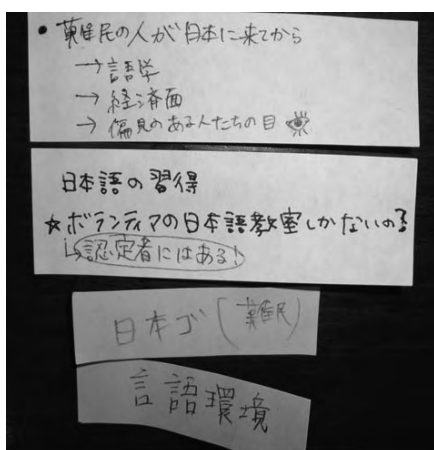 • 難民の人が日本に来てから
→ 言語学
→ 経済面
→ 偏見のある人たちの目
日本語の習得
☆ボランティアの日本語教室しかないの?
↳認定者にはある!
日本ゴ(難民)
言語環境